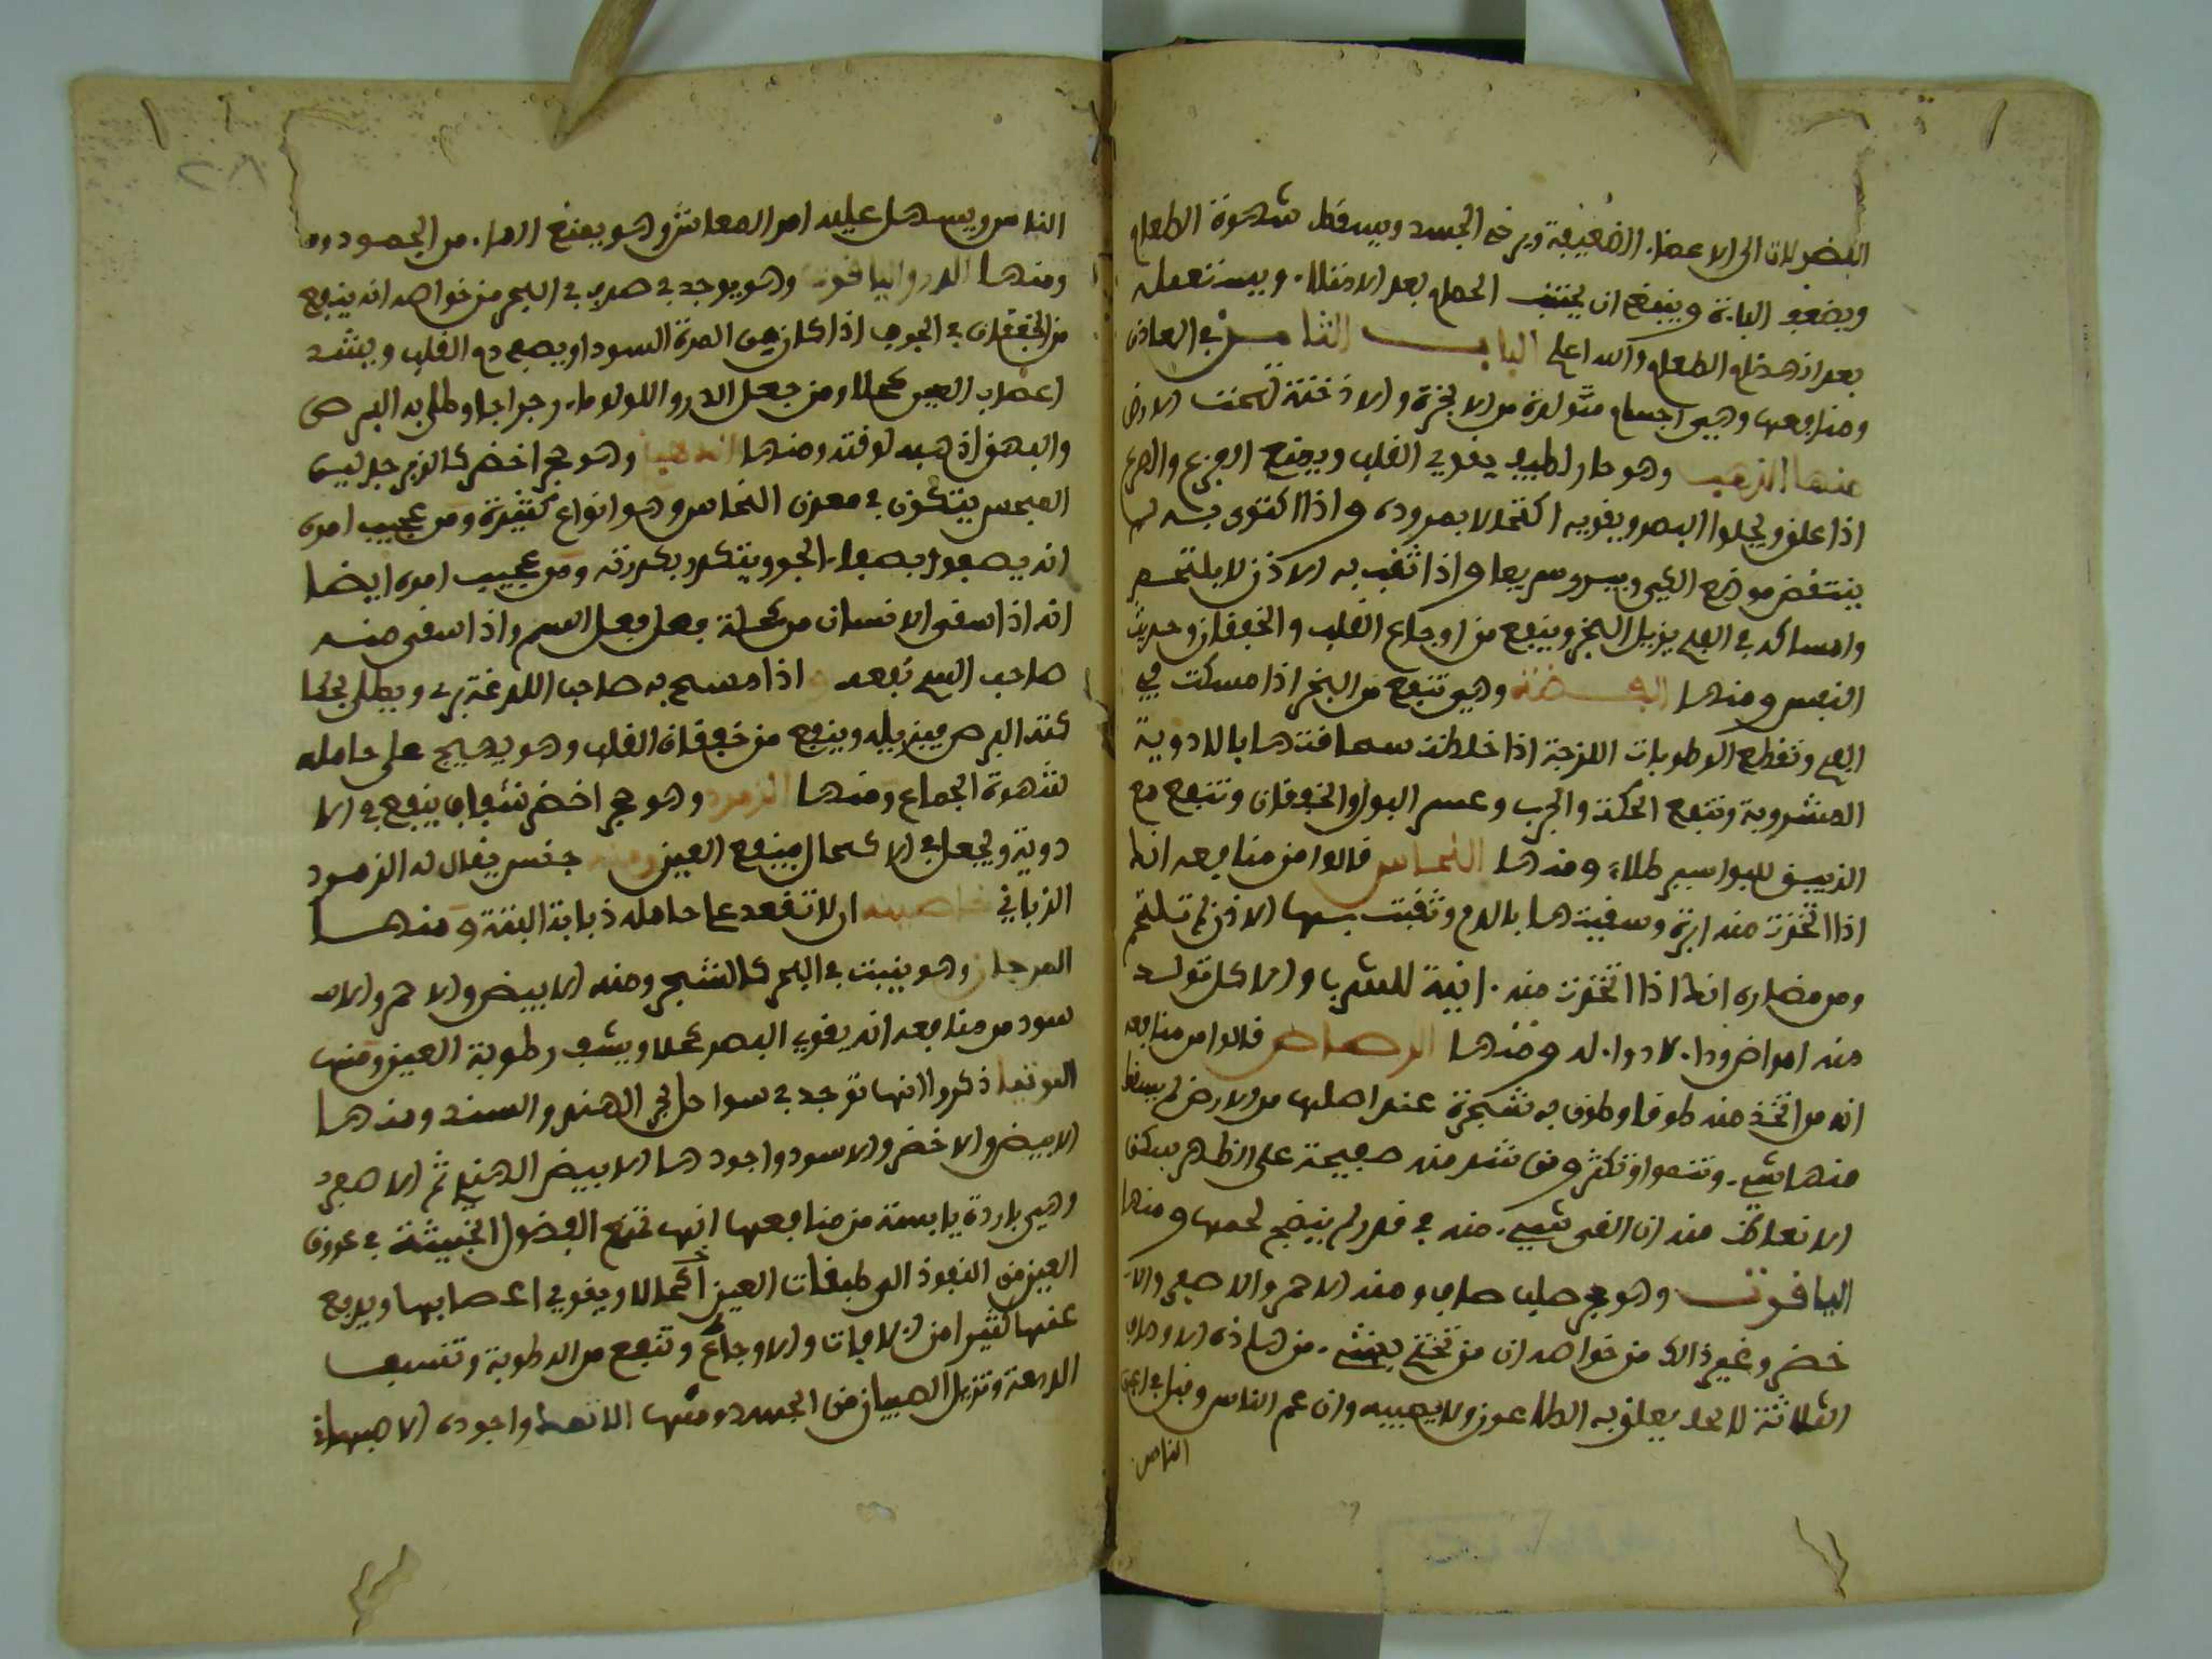 الفضلات الى الاعضاء الضعيفة ويرخي الجسد ويسقط شهوة الطعام
ويضعف الباءة وينبغي ان يجتنب الحمام بعد الامتلاء ويستعمله
بعد انهضام الطعام والله اعلم الباب الثامن في المعادن
ومنافعها وهي اجسام متولدة من الابخرة والادخنة تحت الارض
منها الذهب وهو حار لطيف يقوي القلب ويمنع الفزع والصرع
اذا علق ويجلوا البصر ويقويه اكتحالا بمروده واذا اكتوى به لم
ينتفض موضع الكي ويبرو سريعا واذا ثقب به الاذن لا يلتحم
وامساكه في الفم يزيل البخر وينفع من اوجاع القلب والخفقان وحديث
النفس ومنها الفضة وهي تنفع من البخر اذا مسكت في
الفم وتقطع الرطوبات اللزجة اذا خلطت سحافتها بالادوية
المشروبة وتنفع الحكة والجرب وعسر البول والخفقان وتنفع مع
الزيبق للبواسير طلاء ومنها النحاس قالوا من منافعه انك
اذا اتخذت منه ابرة وسقيتها بالدم وثقبت بها الاذن لم تلتحم
ومن مضاره انك اذا اتخذت منه انية للشرب والاكل تولد
منه امراض وداء لا دواء له ومنها الرصاص قالوا من منافعه
انه من اتخذ منه طوقا وطوق به شجرة عند اصلها من الارض لم يسقط
منها شيء وتنموا وتكثر ومن شد منه صفيحة على الظهر يسكن
الانعاظ منه ان القي شيء منه في قدر لم ينضج لحمها ومنها
الياقوت وهو حجر صلب صاف ومنه الاحمر والاصفر والا
خضر وغير ذالك من خواصه ان من تختم بشيء من هاذه الاوصاف
الثلاثة لا يعلق به الطاعون ولا يصيبه وان عم الناس ونبل في اعين
الناس
٢٨
الناس ويسهل عليه امر المعاش وهو يمنع الماء من الجمود
ومنها الدر والياقوت وهو يوجد في صدف في البحر من خواصه انه ينفع
من الخفقان في الجوف اذا كان من المرة السوداء ويصفي دم القلب ويشد
اعصاب العين كحلا ومن جعل الدر واللولو ماء رجراجا وطلى به البرص
والبهق اذهبه لوقته ومنها الدهنج وهو حجر اخضر كالزبرجد لين
المجس يتكون في معدن النحاس وهو انواع كثيرة ومن عجيب امره
انه يصفوا بصفاء الجو ويتكدر بكدرته ومن عجيب امره ايضا
انه اذا سقي الانسان من محله فعل فعل السم واذا سقي منه
صاحب السم نفعه واذا مسح به صاحب اللدغة بري ويطلى بحكا
كته البرص فيزيله وينفع من خفقان القلب وهو يهيج على حامله
شهوة الجماع ومنها الزمرد وهو حجر اخضر شفاف ينفع في الا
دوية ويجعل في الاكحال فينفع العين ومنه جنس يقال له الزمرد
الذبابي خاصيته ان لا تقعد على حامله ذبابة البتة ومنها
المرجان وهو ينبت في البحر كالشجر ومنه الابيض والاحمر والا
سود من منافعه انه يقوي البصر كحلا وينشف رطوبة العين ومنها
التوتيا ذكروا انها توجد في سواحل بحر الهند والسند ومنها
الابيض والاخضر والاسود واجودها الابيض الهندي ثم الاصفر
وهي باردة يابسة من منافعها انها تمنع الفضول الخبيثة في عروق
العين من النفوذ الى طبقات العين اكحالا ويقوي اعصابها ويدفع
عنها كثيرا من الافات والاوجاع وتنفع من الرطوبة وتنشف
الدمعة وتزيل الصيبان من الجسد ومنها الاثمد واجوده الاصبهاني